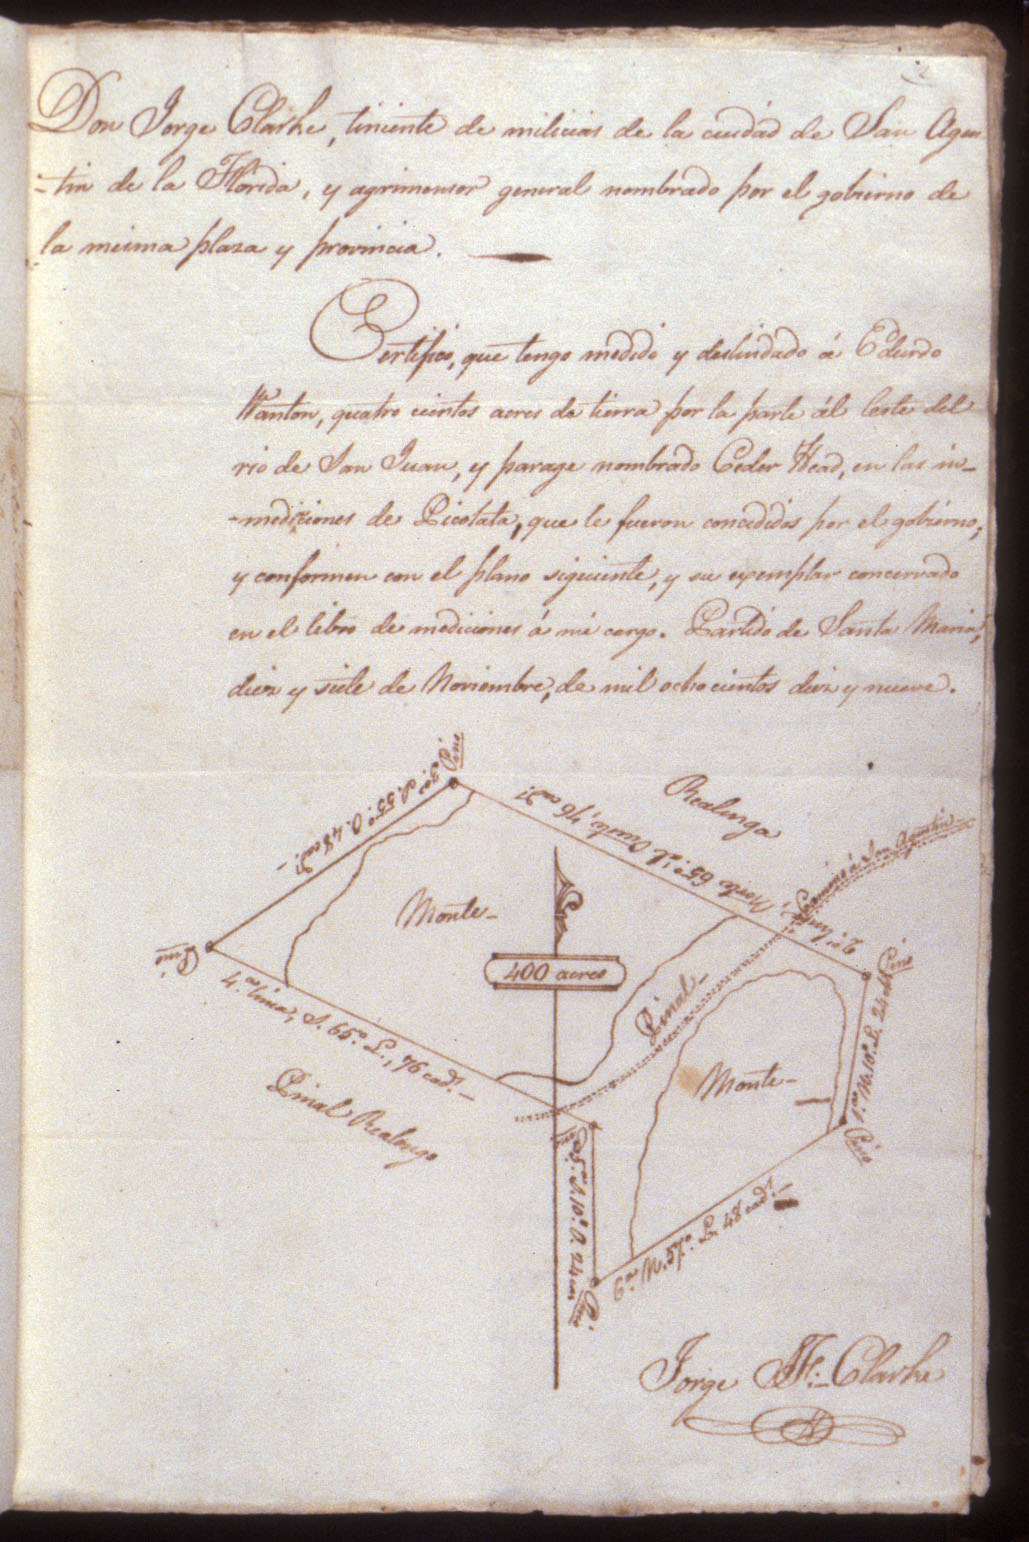 Don Jorge Clarke, tiniente de milicias de la ciudád de San Agus
-tin de la Flórida, y agrimensor general nombrado por el gobierno de
la misma plaza y provincia.
Certifíco, que tengo medido y deslindado á Edúrdo
Wanton, quatro cientos acres de tierra por la parte ál leste del
rio de San Juan, y parage nombrado Ceder Head, en las in-
-mediziones de Picolata, que le fueron concedidos por el gobierno,
y conformen con el plano siguiente, y su exemplar concervado
en el libro de mediciones á mi cargo. Partido de Santa Maria,
diez y siete de Noviembre, de mil ocho cientos diez y nueve.
Pino
3ª S. 55º O. 48 cadˢ.-
Realenga
Norte 65º al Oeste, 76 cadˢ.
2ª linea,
Camino á San Agustin
Monte-
Pino
400 acres
Pinal-
Pino
4ª linea, S. 65º L., 76 cadˢ.-
Monte-
1ª N. 10º L. 24 cadˢ
Pinal Realengo
Pino
5ª S. 10º O. 24 cadˢ
Pino
6ª N. 57º L. 48 cadˢ.-
Pino
Jorge J. F. Clarke